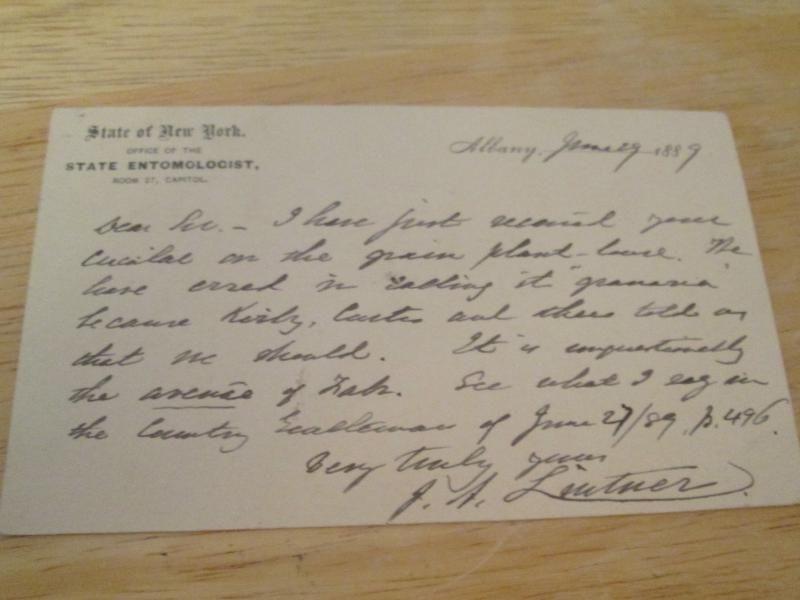 State of New York.
OFFICE OF THE
STATE ENTOMOLOGIST,
ROOM 27, CAPITOL.
Albany, June 29 1889
Dear Sir. – I have just received your
circular on the grain plant-louse. We
have erred in calling it "granaria"
because Kirby, Curtis and others told us
that we should. It is unquestionably
the avenae of Fab. See what I say in
the Country Gentleman of June 27/89, p. 496.
Very truly yours
J. A. Lintner